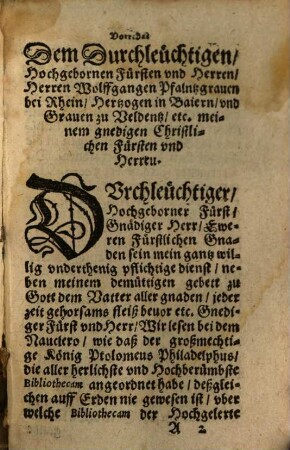 Vorrede
Dem Durchleüchtigen/
Hochgebornen Fürsten vnd Herren/
Herren Wolffgangen Pfaltzgrauen
bei Rhein/ Hertzogen in Baiern/ vnd
Grauen zu Veldentz/ etc. mei-
nem gnedigen Christli-
chen Fürsten vnd
Herren.
DVrchleüchtiger/
Hochgeborner Fürst/
Gnädiger Herr/ Ewe-
ren Fürstlichen Gna-
den sein mein gantz wil-
lig vnderthenig pflichtige dienst/ ne-
ben meinem demüttigen gebett zu
Gott dem Vatter aller gnaden/ jeder
zeit gehorsams fleiß beuor etc. Gnedi-
ger Fürst vnd Herr/ Wir lesen bei dem
Nauclero/ wie daß der großmechti-
ge König Ptolomeus Philadelphus/
die aller herlichste vnd Hochberümbste
Bibliothecam angeordnet habe/ deßglei-
chen auff Erden nie gewesen ist/ vber
welche Bibliothecam der Hochgelerte
A 2